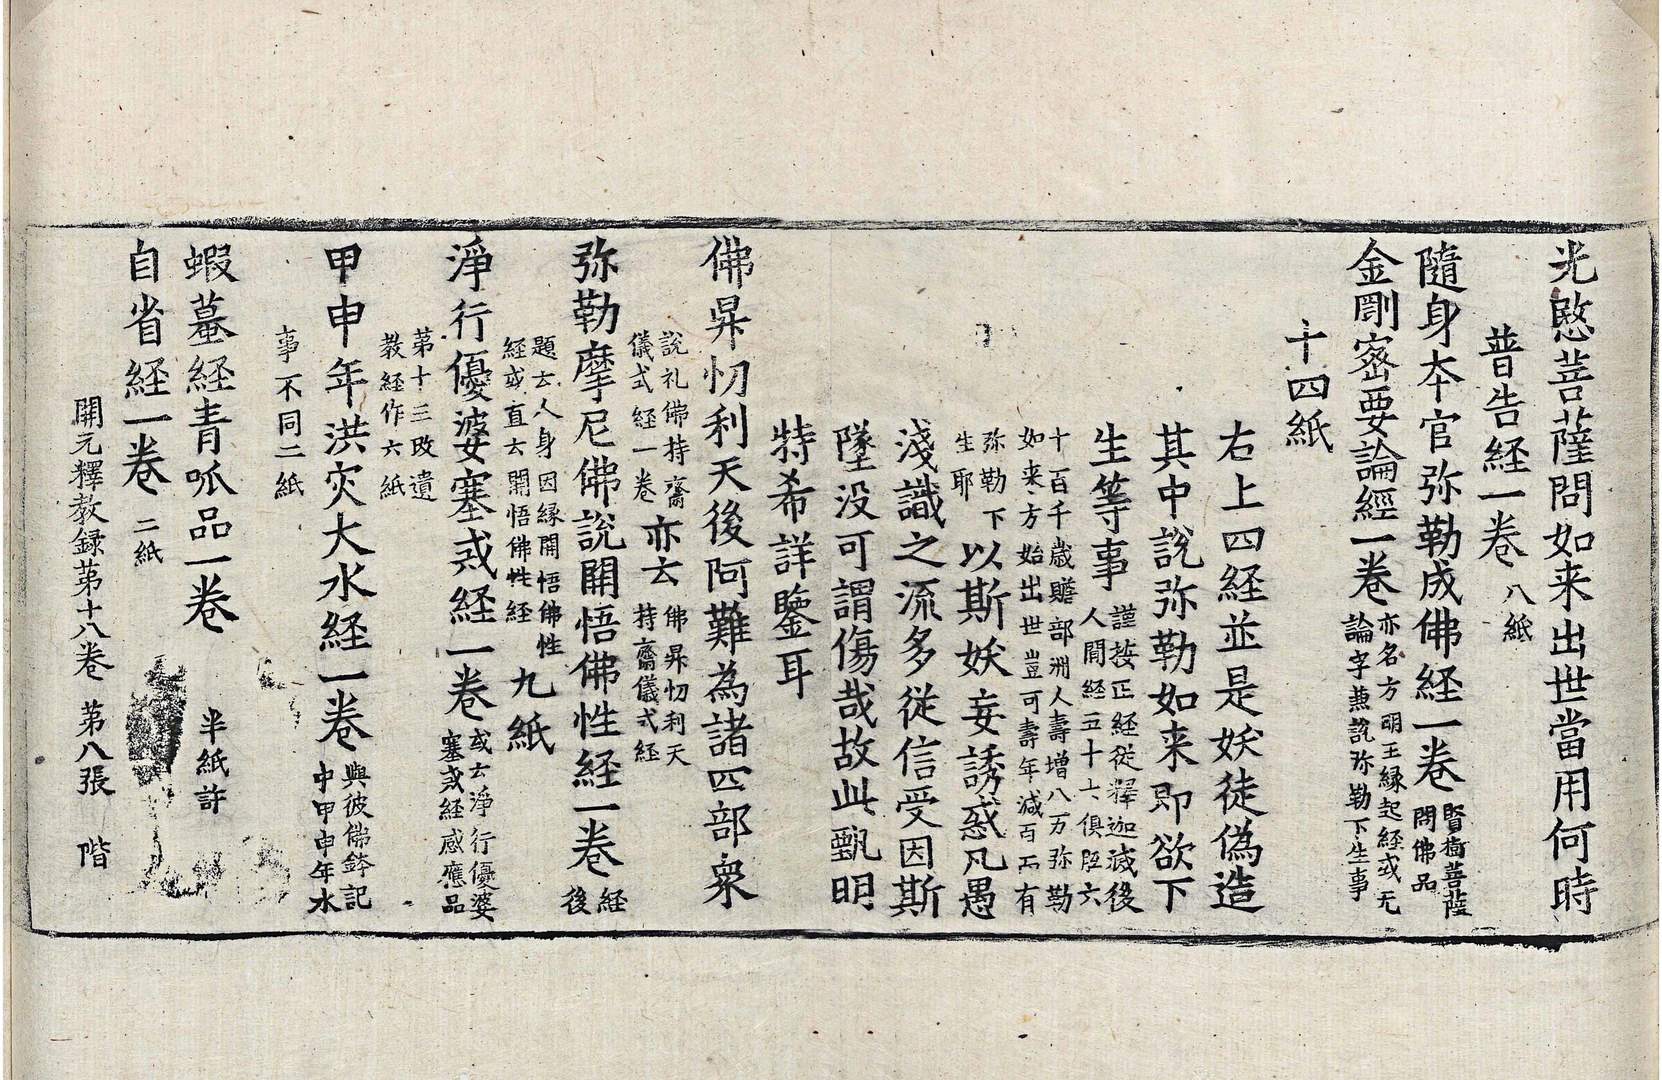 光愍菩薩問如来出世當用何時
普告経一卷 八紙
隨身本官弥勒成佛経一卷 賢樹菩薩
問佛品
金剛密要論經一卷 亦名方明王縁起経或无
論字兼說弥勒下生事
十四紙
右上四経並是妖徒偽造
其中說弥勒如来即欲下
生等事 謹按正経従釋迦滅後
人間経五十七俱胝六
十百千歳贍部洲人壽增八万弥勒
如来方始出世豈可壽年減百而有
弥勒下
生耶
以斯妖妄誘惑凡愚
淺識之流多従信受因斯
墜没可謂傷哉故此甄明
特希詳鑒耳
佛昇忉利天後阿難為諸四部衆
說礼佛持齋
儀式経一卷
亦云 佛昇忉利天
持齋儀式経
弥勒摩尼佛說開悟佛性経一卷 経
後
題云人身因縁開悟佛性
経或直云開悟佛性経
九紙
淨行優婆塞戒経一卷 或云淨行優婆
塞戒経感應品
第十三改遺
教経作六紙
甲申年洪灾大水経一卷 與彼佛鉢記
中甲申年水
事不同二紙
蝦蟇経青呱品一卷 半紙許
自省経一卷 二紙
開元釋教録第十八卷 第八張 階